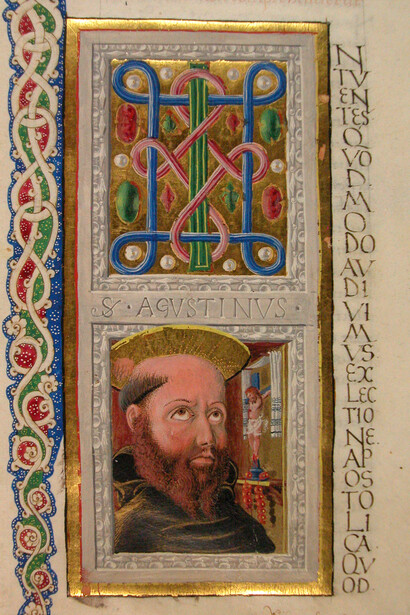 S · AGVSTINVS ·
N
TV
EN
TES
QV
OD
M
O
DO
AV
DI
VI
M
VS
EX
L
EC
TI
O
NE
AP
OS
TO
LI
CA
QV
OD